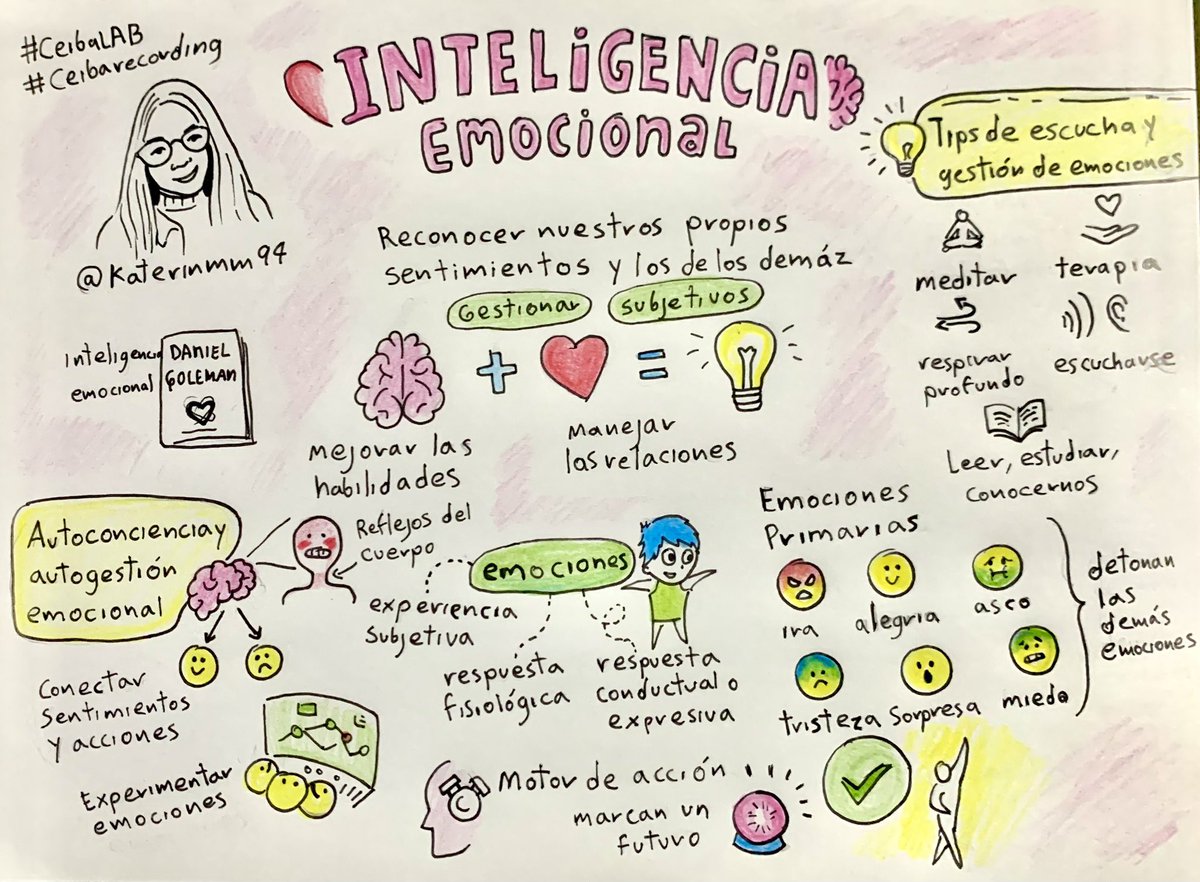 #CeibaLAB
#Ceibarecording
@Katerinmm94
INTELIGENCIA
EMOCIONAL
Reconocer nuestros propios
sentimientos y los de los demáz
Gestionar
subjetivos
Mejorar las
habilidades
Manejar
las relaciones
Inteligencia
emocional
DANIEL
GOLEMAN
Tips de escucha y
gestión de emociones
meditar
terapia
respirar
profundo
escucharse
Leer, estudiar,
conocernos
Autoconciencia y
autogestión
emocional
Reflejos del
cuerpo
Conectar
sentimientos
y acciones
Experimentar
emociones
emociones
experiencia
subjetiva
respuesta
fisiológica
respuesta
conductual o
expresiva
Emociones
Primarias
ira
alegria
asco
tristeza
sorpresa
miedo
detonan
las
demás
emociones
Motor de acción
marcan un
futuro